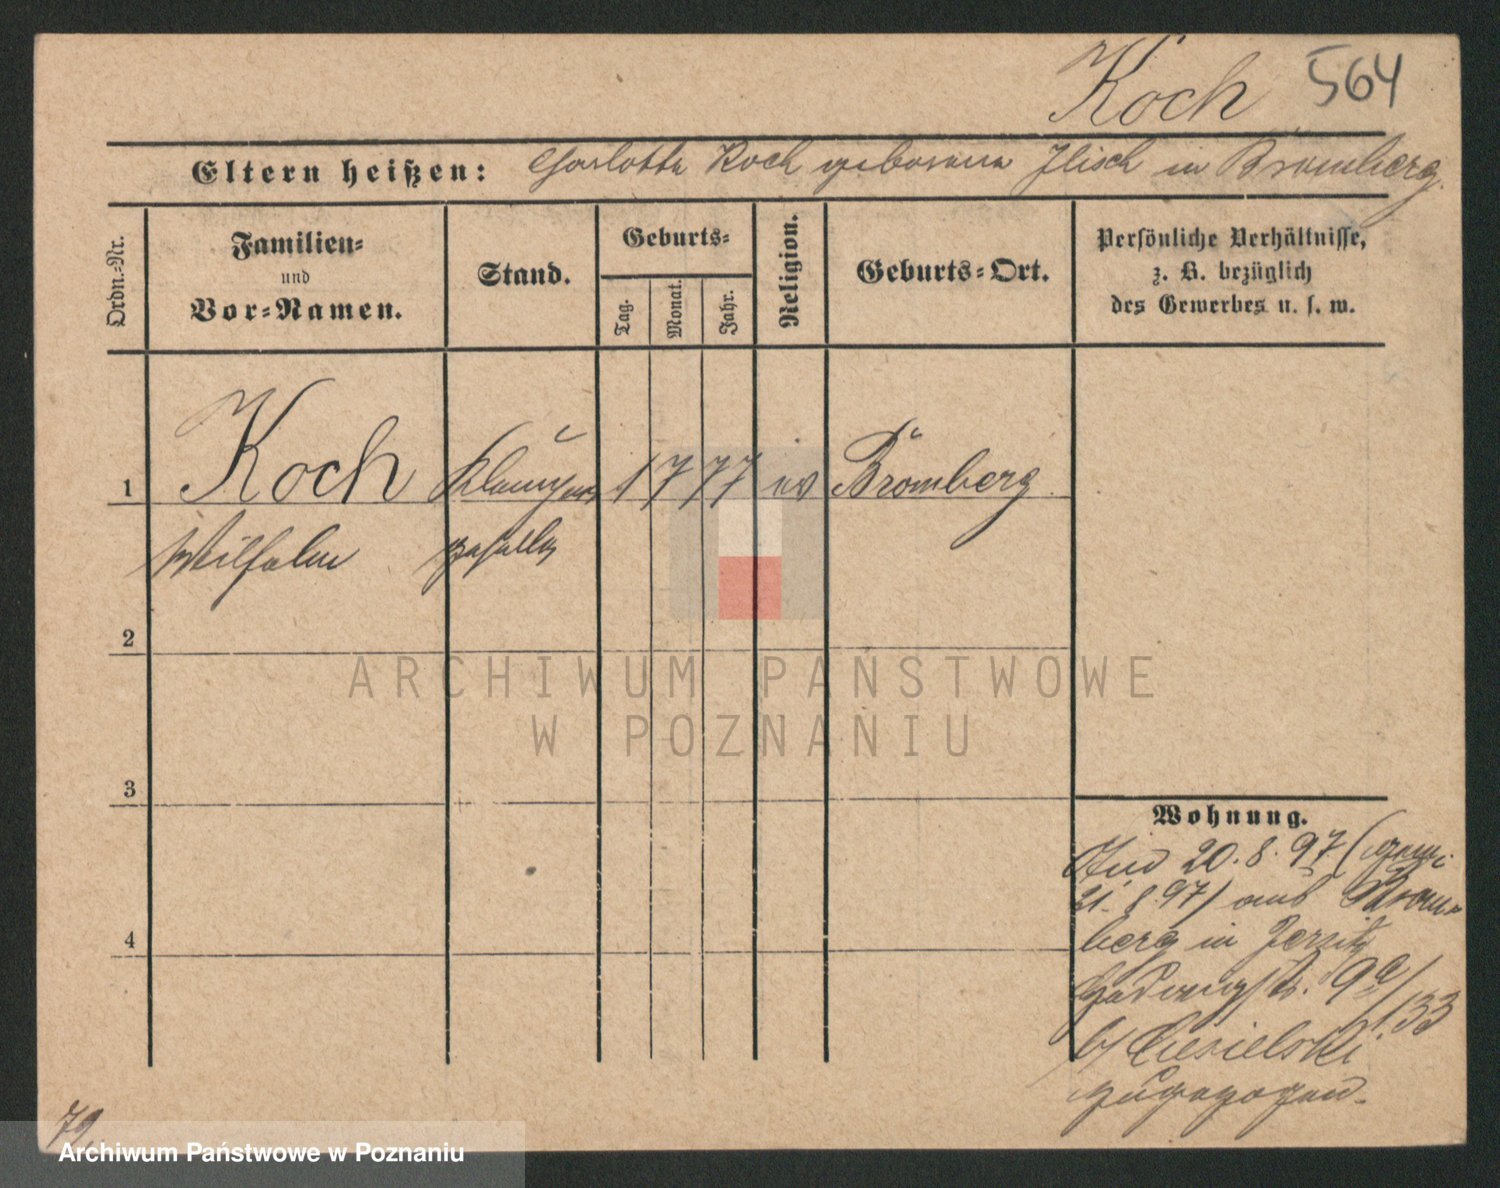 Koch 564
Eltern heißen: Charlotte Koch geborene Jlisch in Bromberg.
Ordn.-Nr.
Familien-
und
Vor-Namen.
Stand.
Geburts-
Tag.
Monat.
Jahr.
Religion.
Geburts-Ort.
Persönliche Verhältnisse,
z. B. bezüglich
des Gewerbes u. s. w.
1 Koch Klempner 1 7 77 ev Bromberg
Wilhelm geselle
2
3
4
Wohnung.
20.8.97 (gem.
21.8.97) aus Brom-
berg in Jersitz
Hedwigstr. 9a/133
b/ Ciesielski
zugezogen.
79
ARCHIWUM PAŃSTWOWE
W POZNANIU
Archiwum Państwowe w Poznaniu